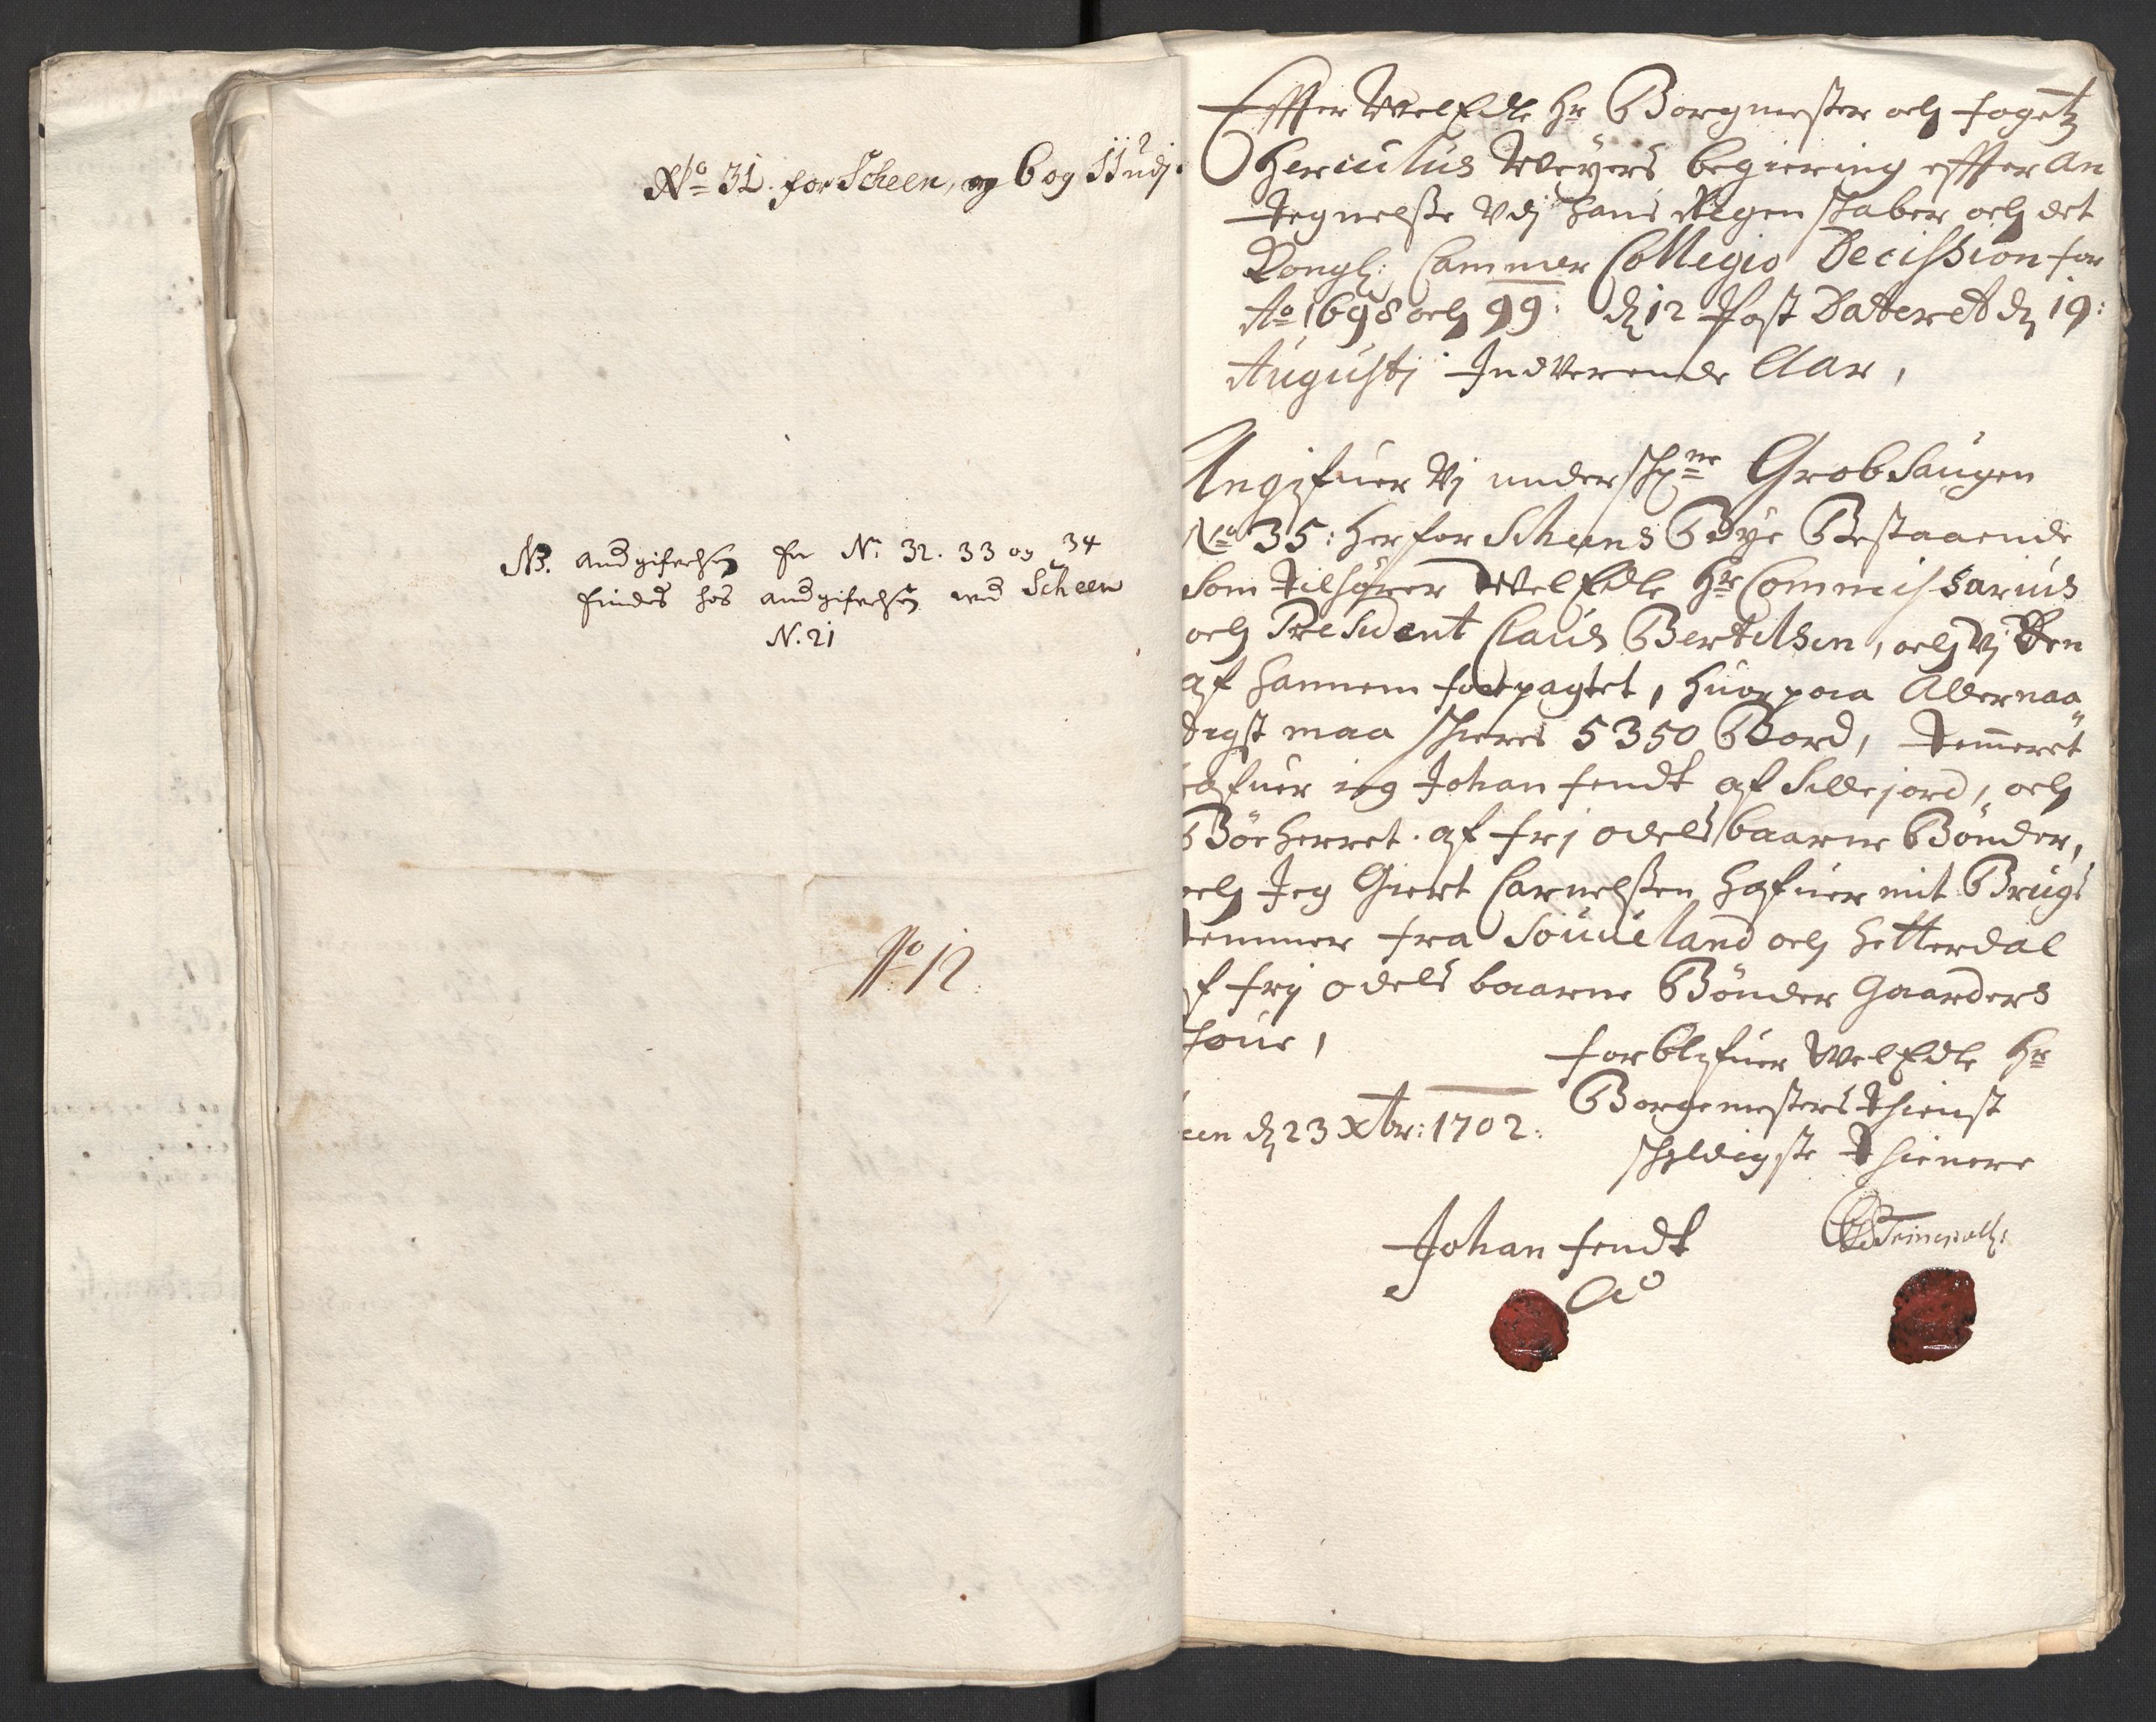 No 31. for Scheen, og 6 og
NB. andgifvelsen for N: 32. 33 og 34
findes hos andgifvelsen ved Scheen
N. 21
No 12.
Effter WelEdle Hr Borgmester och fogetz
Herculus Weyers begiering effter An
tegnelsse Vdj hans Regenskaber och det
Kongl: Cammer Collegio Decission for
Ao 1698 och 99: d 12 Post Datteret d 19:
Augustj Indverende Aar,
Angifuer Vj underskr:ne Grob Saugen
No 35: her for Scheens Bye Bestaaende
Som tilhører WelEdle Hr Commissarius
och President Claus Bertelsen, och Vj den
af hannem forpagtet, huor paa Allernaa
digst maa skieres 5350 Bord, Temmeret
hafuer ieg Johan fendt af Sillejord, och
Bøe herret af frj odels baarne Bønder,
och Jeg Giert Carnelssen hafuer mit Brugs
temmer fra Souueland och Hetterdal
af frij odels baarne Bønder Gaarders
skoue,
forblifuer WelEdle Hr
Borgemesters thienst
skyldigste Thienere
een d 23 Xbr: 1702:
Johan fendt